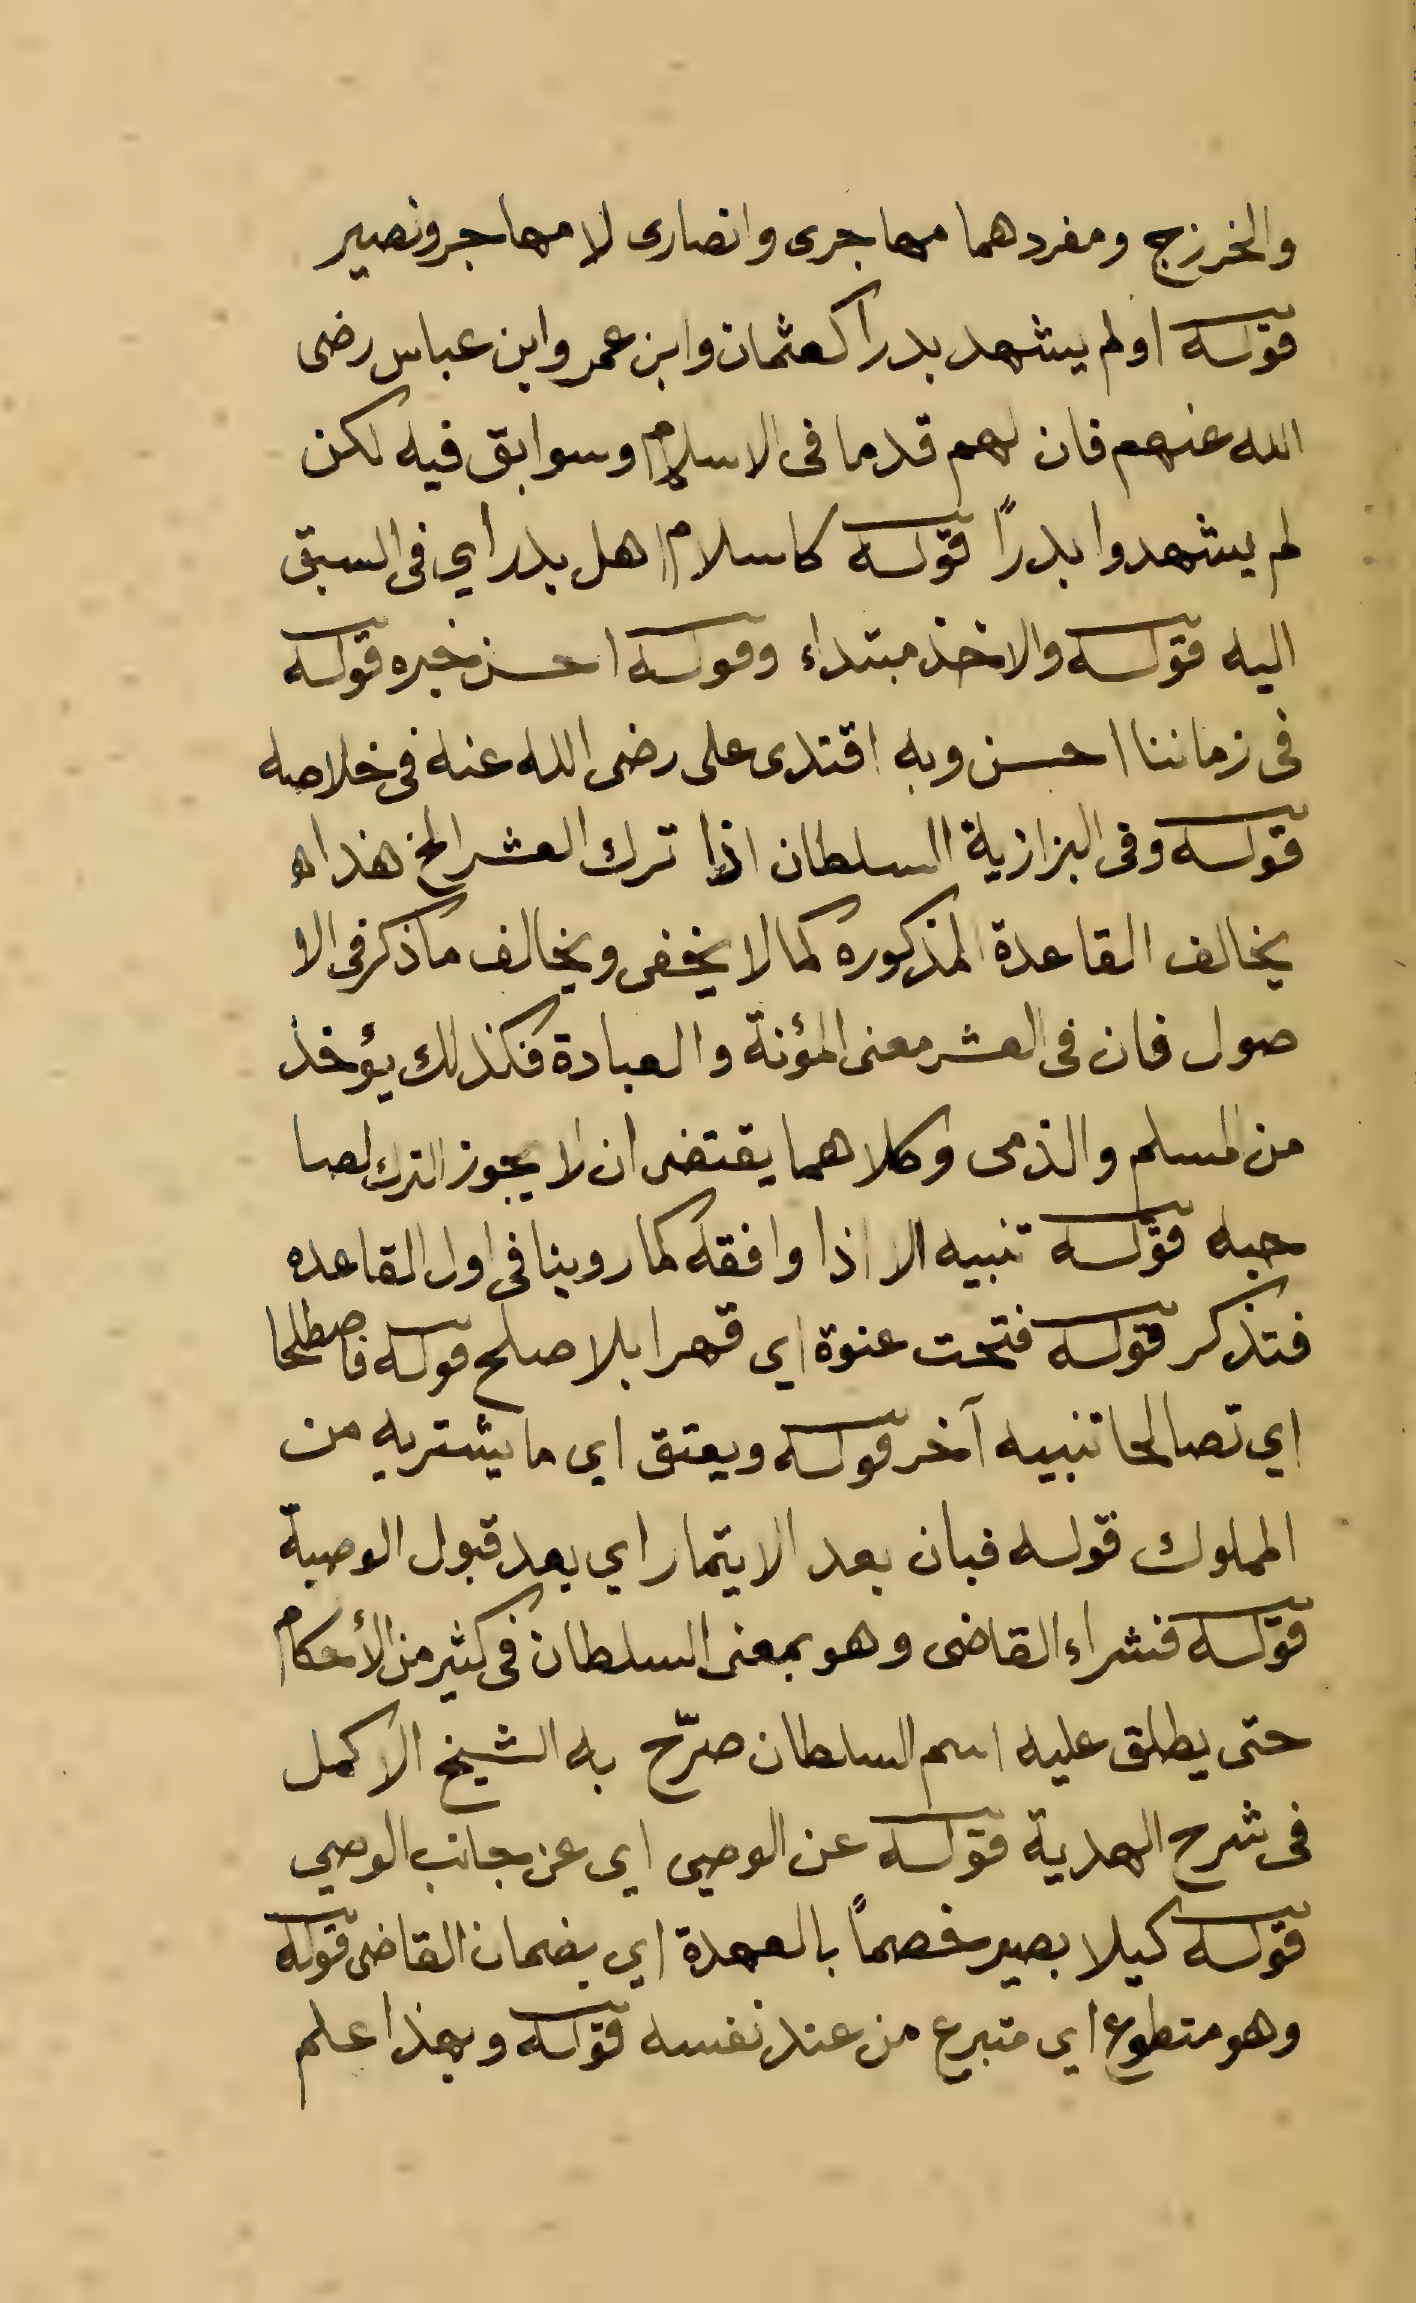 والخزرج ومفردهما مهاجرى وانصارى لا مهاجر ونصير
قوله او لم يشهد بدرا كعثمان وابن عمر وابن عباس رضى
الله عنهم فان لهم قدما فى الاسلام وسوابق فيه لكن
لم يشهدوا بدرًا قوله كاسلام اهل بدر اي فى السبق
اليه قوله والاخذ مبتداء وقوله احسن خبره قوله
فى زماننا احسن وبه اقتدى على رضى الله عنه فى خلاصه
قوله وفى البزازية السلطان اذا ترك العشر الخ هذا
يخالف القاعدة المذكوره كما لا يخفى ويخالف ما ذكر فى الا
صول فان فى العشر معنى المؤنة والعبادة فكذلك يؤخذ
من المسلم والذمى وكلاهما يقتضى ان لا يجوز الترك لصا
حبه قوله تنبيه الا اذا وافقه كما روينا فى اول القاعده
فتذكر قوله فتحت عنوة اي قهرا بلا صلح قوله فاصطلحا
اي تصالحا تنبيه آخر قوله ويعتق اي ما يشتريه من
المملوك قوله فبان بعد الايتمار اي بعد قبول الوصية
قوله فشراء القاضى وهو بمعنى السلطان فى كثير من الأحكام
حتى يطلق عليه اسم السلطان صرّح به الشيخ الاكمل
فى شرح الهدية قوله عن الوصى اي عن جانب الوصي
قوله كيلا يصير خصماً بالعهدة اي بضمان القاضى قوله
وهو متطوع اي متبرع من عند نفسه قوله وبهذا علم